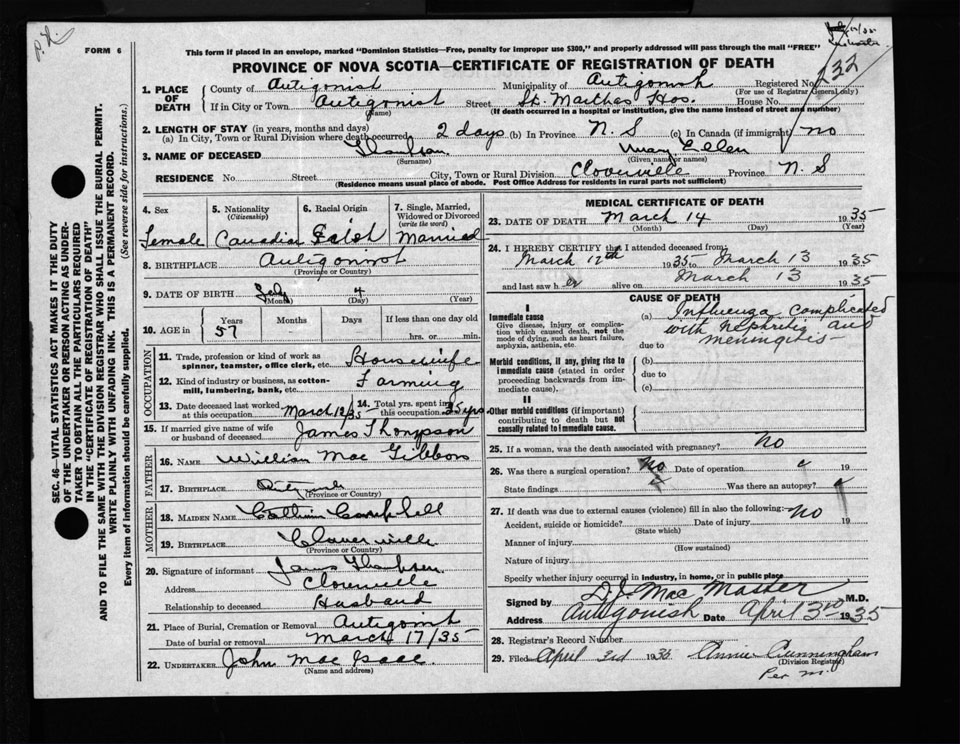 P.R.
FORM 6
This form if placed in an envelope, marked "Dominion Statistics—Free, penalty for improper use $300," and properly addressed will pass through the mail "FREE"
PROVINCE OF NOVA SCOTIA—CERTIFICATE OF REGISTRATION OF DEATH
232
SEC. 46—VITAL STATISTICS ACT MAKES IT THE DUTY
OF THE UNDERTAKER OR PERSON ACTING AS UNDER-
TAKER TO OBTAIN ALL THE PARTICULARS REQUIRED
IN THE "CERTIFICATE OF REGISTRATION OF DEATH"
AND TO FILE THE SAME WITH THE DIVISION REGISTRAR WHO SHALL ISSUE THE BURIAL PERMIT.
WRITE PLAINLY WITH UNFADING INK. THIS IS A PERMANENT RECORD.
Every item of information should be carefully supplied. (See reverse side for instructions.)
1. PLACE OF DEATH County of Antigonist Municipality of Antigonish Registered No.
(For use of Registrar General only)
If in City or Town Antigonist Street St. Marthas Hos. House No.
(Name) (If death occurred in a hospital or institution, give the name instead of street and number)
2. LENGTH OF STAY (in years, months and days)
(a) In City, Town or Rural Division where death occurred 2 days (b) In Province N. S (c) In Canada (if immigrant) no
3. NAME OF DECEASED Thompson Mary Ellen
(Surname) (Given name or names)
RESIDENCE No. Street City, Town or Rural Division Cloverville Province N. S
(Residence means usual place of abode. Post Office Address for residents in rural parts not sufficient)
4. Sex 5. Nationality (Citizenship) 6. Racial Origin 7. Single, Married, Widowed or Divorced (write the word)
Female Canadian Married
8. BIRTHPLACE
(Province or Country)
9. DATE OF BIRTH 4
(Month) (Day) (Year)
10. AGE in Years Months Days If less than one day old
57 - hrs. or min.
OCCUPATION
11. Trade, profession or kind of work as spinner, teamster, office clerk, etc. Housewife
12. Kind of industry or business, as cotton-mill, lumbering, bank, etc. Farming
13. Date deceased last worked at this occupation March 12/35 14. Total yrs. spent in this occupation 35 yrs.
15. If married give name of wife or husband of deceased James Thompson
FATHER
16. NAME William Mac Gibbon
17. BIRTHPLACE
(Province or Country)
MOTHER
18. MAIDEN NAME Campbell
19. BIRTHPLACE Cloverville
(Province or Country)
20. Signature of informant James Thompson
Address Cloverville
Relationship to deceased Husband
21. Place of Burial, Cremation or Removal
Date of burial or removal March 17/35
22. UNDERTAKER John Mac Isaac
(Name and address)
MEDICAL CERTIFICATE OF DEATH
23. DATE OF DEATH March 14 1935
(Month) (Day) (Year)
24. I HEREBY CERTIFY that I attended deceased from
March 12th 1935 to March 13 1935
and last saw her alive on March 13 1935
CAUSE OF DEATH
I
Immediate cause
Give disease, injury or complication which caused death, not the mode of dying, such as heart failure, asphyxia, asthenia, etc.
(a) Influenza complicated
with nephritis and
due to meningitis
Morbid conditions, if any, giving rise to immediate cause (stated in order proceeding backwards from immediate cause).
(b)
due to
(c)
II
Other morbid conditions (if important) contributing to death but not causally related to immediate cause.
25. If a woman, was the death associated with pregnancy? No
26. Was there a surgical operation? No Date of operation 19
State findings Was there an autopsy?
27. If death was due to external causes (violence) fill in also the following:- No
Accident, suicide or homicide? Date of injury 19
(State which)
Manner of injury
(How sustained)
Nature of injury
Specify whether injury occurred in industry, in home, or in public place
Signed by D. J. Mac Master M.D.
Address Antigonish Date April 3rd 1935
28. Registrar's Record Number
29. Filed April 3rd 1935 Annie Cunningham
(Division Registrar)
Per M.